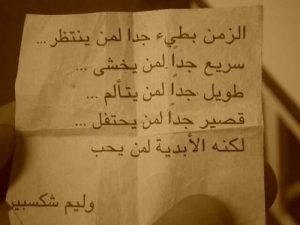 الزمن بطيء جدا لمن ينتظر ...
سريع جداً لمن يخشى ...
طويل جداً لمن يتألم ...
قصير جداً لمن يحتفل ...
لكنه الأبدية لمن يحب
وليم شكسبير